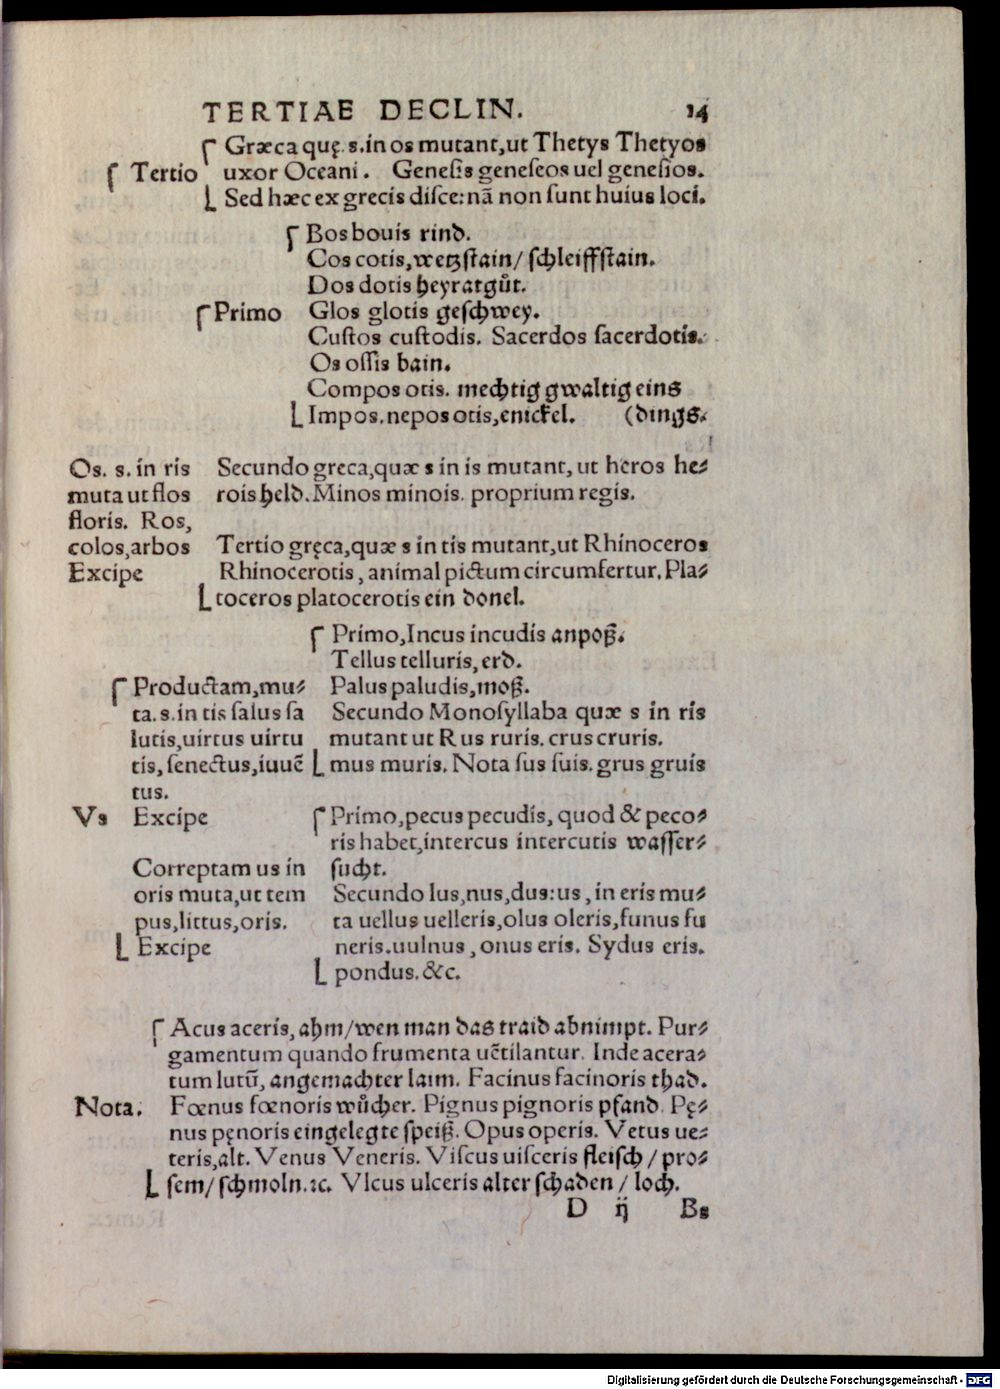 TERTIAE DECLIN. 14
Græca quę. s. in os mutant, ut Thetys Thetyos
Tertio uxor Oceani. Genesis geneseos uel genesios.
Sed hæc ex grecis disce: nã non sunt huius loci.
Bos bouis rind.
Cos cotis, wetzstain/ schleiffstain.
Dos dotis heyratgůt.
Primo Glos glotis geschwey.
Custos custodis. Sacerdos sacerdotis.
Os ossis bain.
Compos otis. mechtig gwaltig eins
Impos. nepos otis, enickel. (dings.
Os. s. in ris Secundo greca, quæ s in is mutant, ut heros he⸗
muta ut flos rois held. Minos minois. proprium regis.
floris. Ros,
colos, arbos Tertio gręca, quæ s in tis mutant, ut Rhinoceros
Excipe Rhinocerotis, animal pictum circumfertur. Pla⸗
toceros platocerotis ein donel.
Primo, Incus incudis anpoß.
Tellus telluris, erd.
Productam, mu⸗ Palus paludis, moß.
ta. s. in tis salus sa Secundo Monosyllaba quæ s in ris
lutis, uirtus uirtu mutant ut Rus ruris. crus cruris.
tis, senectus, iuuẽ mus muris. Nota sus suis. grus gruis
tus.
Vs Excipe Primo, pecus pecudis, quod & peco⸗
ris habet, intercus intercutis wasser⸗
Correptam us in sucht.
oris muta, ut tem Secundo lus, nus, dus: us, in eris mu⸗
pus, littus, oris. ta uellus uelleris, olus oleris, funus fu
Excipe neris. uulnus, onus eris. Sydus eris.
pondus. &c.
Acus aceris, ahm/ wen man das traid abnimpt. Pur⸗
gamentum quando frumenta uẽtilantur. Inde acera⸗
tum lutũ, angemachter laim. Facinus facinoris thad.
Nota. Fœnus fœnoris wůcher. Pignus pignoris pfand. Pę⸗
nus pęnoris eingelegte speiß. Opus operis. Vetus ue⸗
teris, alt. Venus Veneris. Viscus uisceris fleisch / pro⸗
sem/ schmoln. ꝛc. Vlcus ulceris alter schaden / loch.
D ij Bs
Digitalisierung gefördert durch die Deutsche Forschungsgemeinschaft - DFG